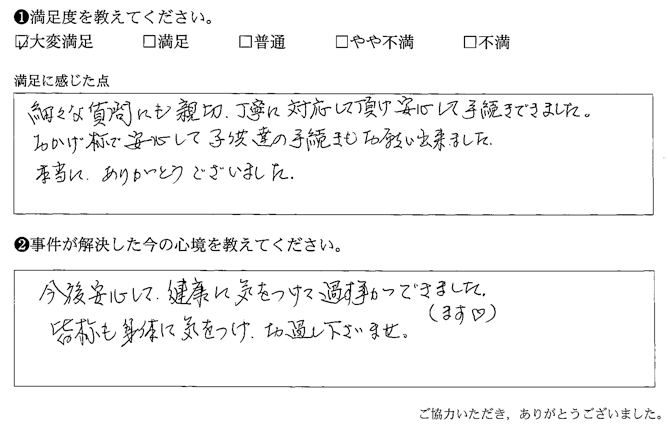 ❶満足度を教えてください。
☑大変満足 □満足 □普通 □やや不満 □不満
満足に感じた点
細々な質問にも親切、丁寧に対応して頂け安心して手続きできました。
おかげ様で安心して子供達の手続きもお願い出来ました。
本当に、ありがとうございました。
❷事件が解決した今の心境を教えてください。
今後安心して、健康に気をつけて過す事ができました。
(ます♡)
皆様も身体に気をつけ、お過し下さいませ。
ご協力いただき，ありがとうございました。